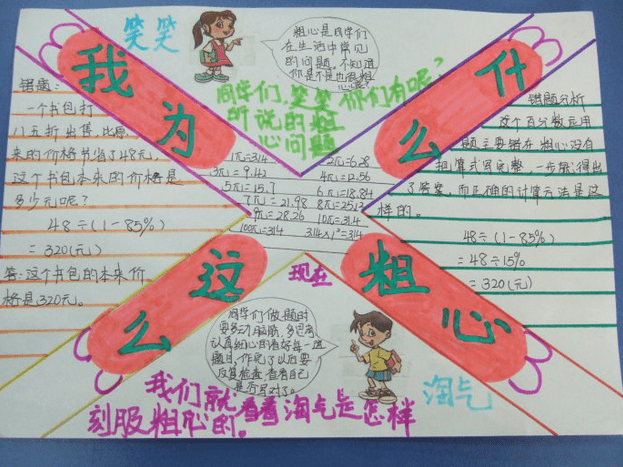 我为什么这么粗心
笑笑
粗心是同学们
在生活中常见
的问题，不知道
你是不是也很粗
心呢？
同学们，笑笑 你们有呢？
所说的粗
心问题
错题：
一个书包打
八五折出售，比原
来的价格节省了48元，
这个书包本来的价格是
多少元呢？
48÷(1-85%)
=320(元)
答：这个书包的本来价
格是320元。
1π=3.14 2π=6.28
3π=9.42 4π=12.56
5π=15.7 6π=18.84
7π=21.98 8π=25.12
9π=28.26 10π=31.4
100π=314 314×1²=314
错题分析
这个百分数应用
题主要错在粗心没有
把算式写完整，一步就得出
了答案，而正确的计算方法是这
样的。
48÷(1-85%)
=48÷15%
=320(元)
现在
同学们做题时
要多动脑筋，多思考
认真细心的看好每一道
题目，作完了以后要
反复检查，看看自己
是否写对了。
淘气
我们就看看淘气是怎样
刻服粗心的。